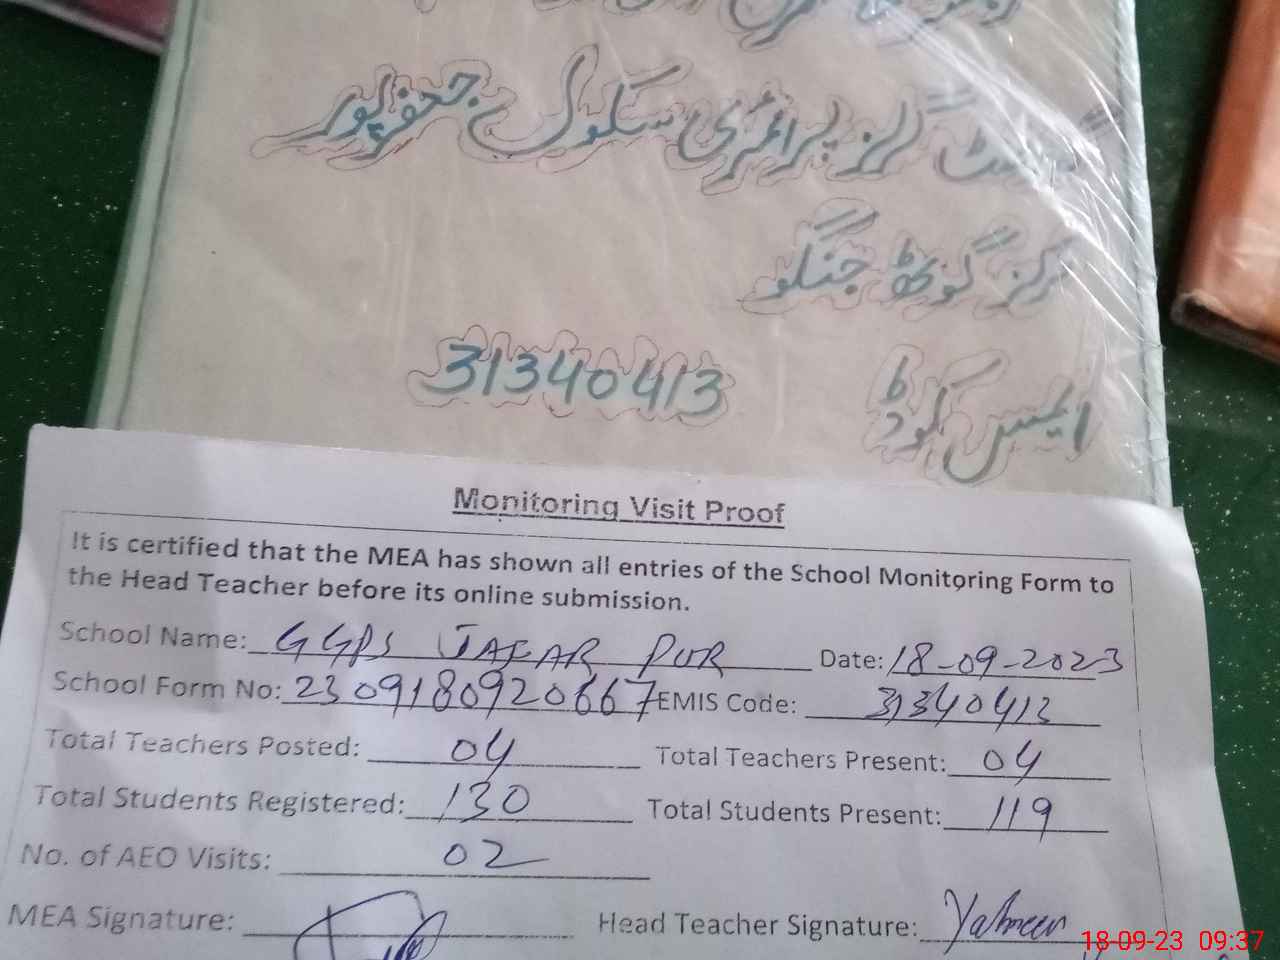 گرلز پرائمری سکول جعفرپور
مرکز گوٹھ جنگو
ایمس کوڈ 31340413
Monitoring Visit Proof
It is certified that the MEA has shown all entries of the School Monitoring Form to
the Head Teacher before its online submission.
School Name: GGPS JAFAR PUR Date: 18-09-2023
School Form No: 2309180920667 EMIS Code: 31340413
Total Teachers Posted: 04 Total Teachers Present: 04
Total Students Registered: 130 Total Students Present: 119
No. of AEO Visits: 02
MEA Signature: Head Teacher Signature: Yasmeen
18-09-23 09:37